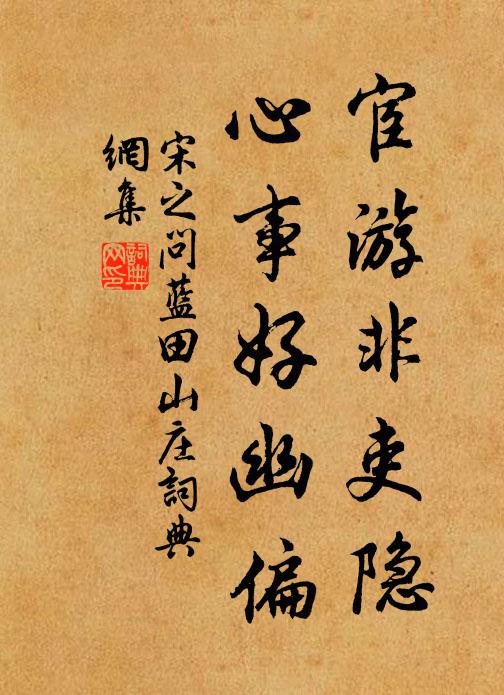 宦游非吏隐
心事好幽偏
宋之问蓝田山庄詞典
網集
詞典
网印